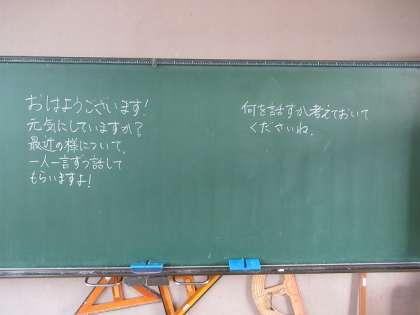 おはようございます!
元気にしていますか?
最近の様について、
一人一言ずつ話して
もらいますよ!
何を話すか考えておいて
くださいね。